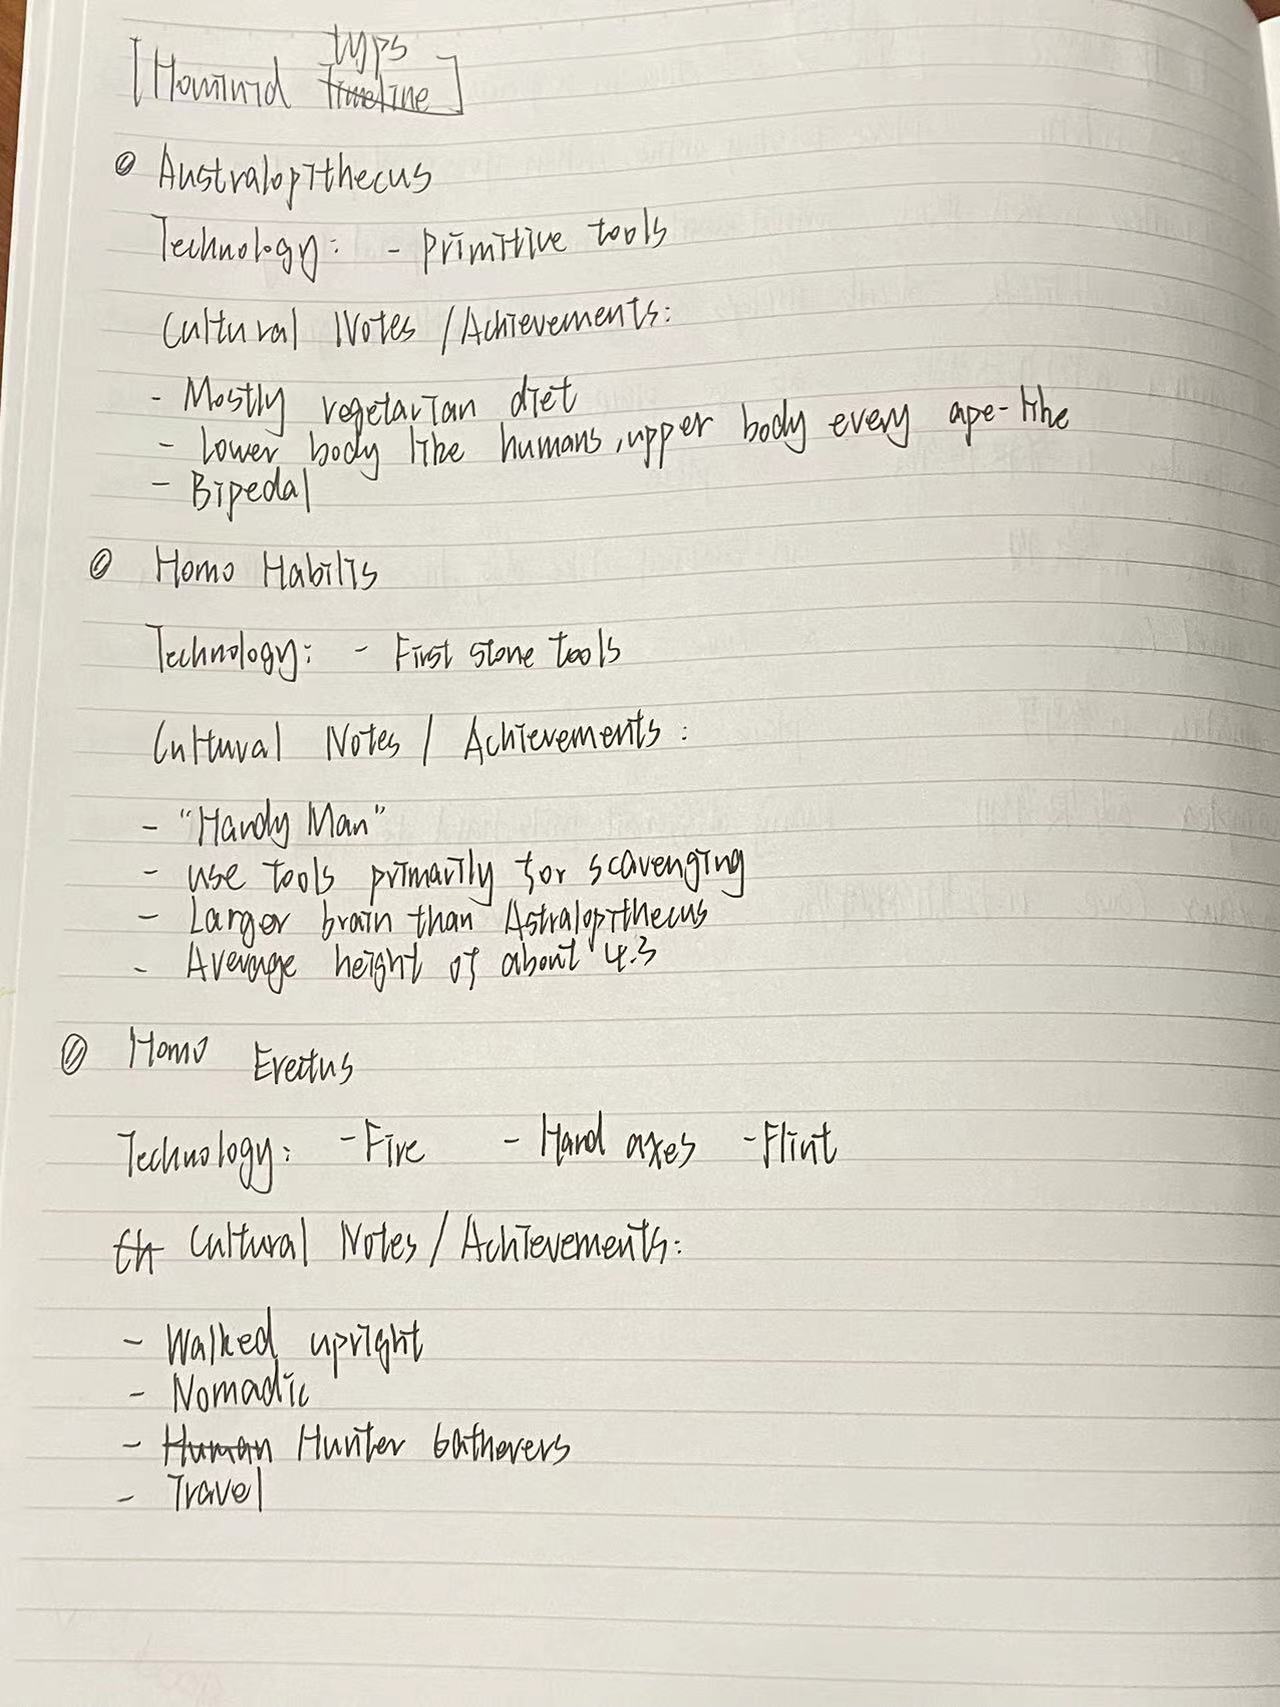 [Hominid timeline typs]
Australopithecus
Technology: - primitive tools
Cultural Notes / Achievements:
- Mostly vegetarian diet
- Lower body like humans, upper body every ape-like
- Bipedal
Homo Habilis
Technology: - First stone tools
Cultural Notes / Achievements:
- "Handy Man"
- use tools primarily for scavenging
- Larger brain than Astralopithecus
- Average height of about 4.3
Homo Erectus
Technology: - Fire - Hand axes - Flint
Ch Cultural Notes / Achievements:
- Walked upright
- Nomadic
- Human Hunter Gatherers
- Travel